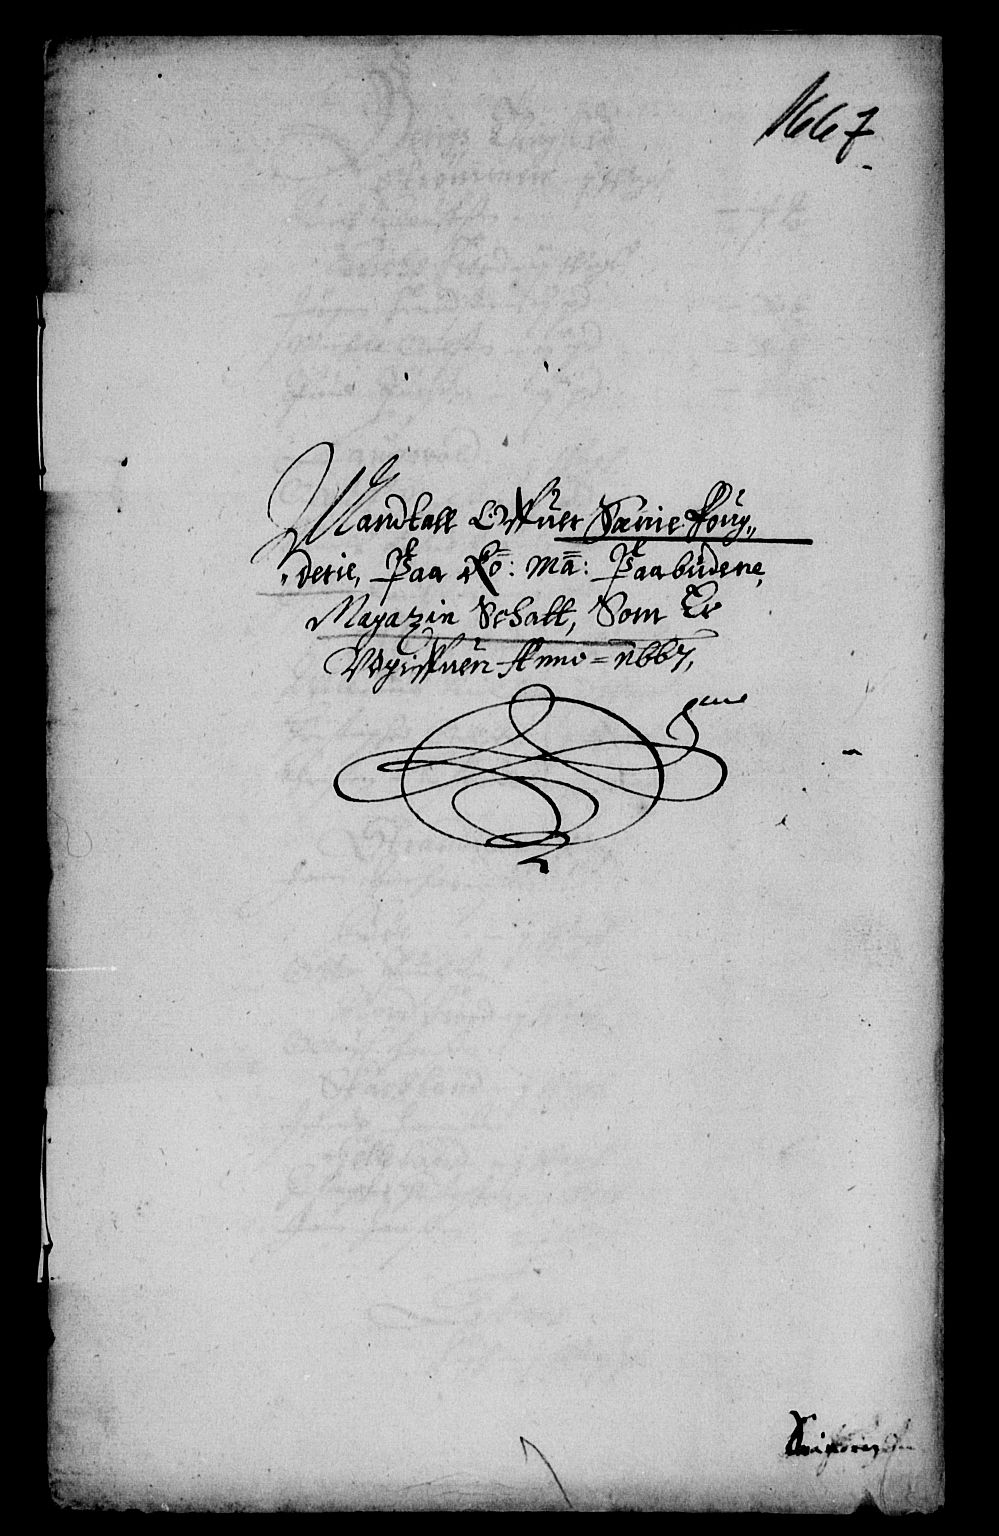 1667
Mandtall Offuer Sænie foug„
„derie, Paa Ko: Ma: Paabudene,
Magazin Schatt, Som Er
Vdgiffuen Anno = 1667,